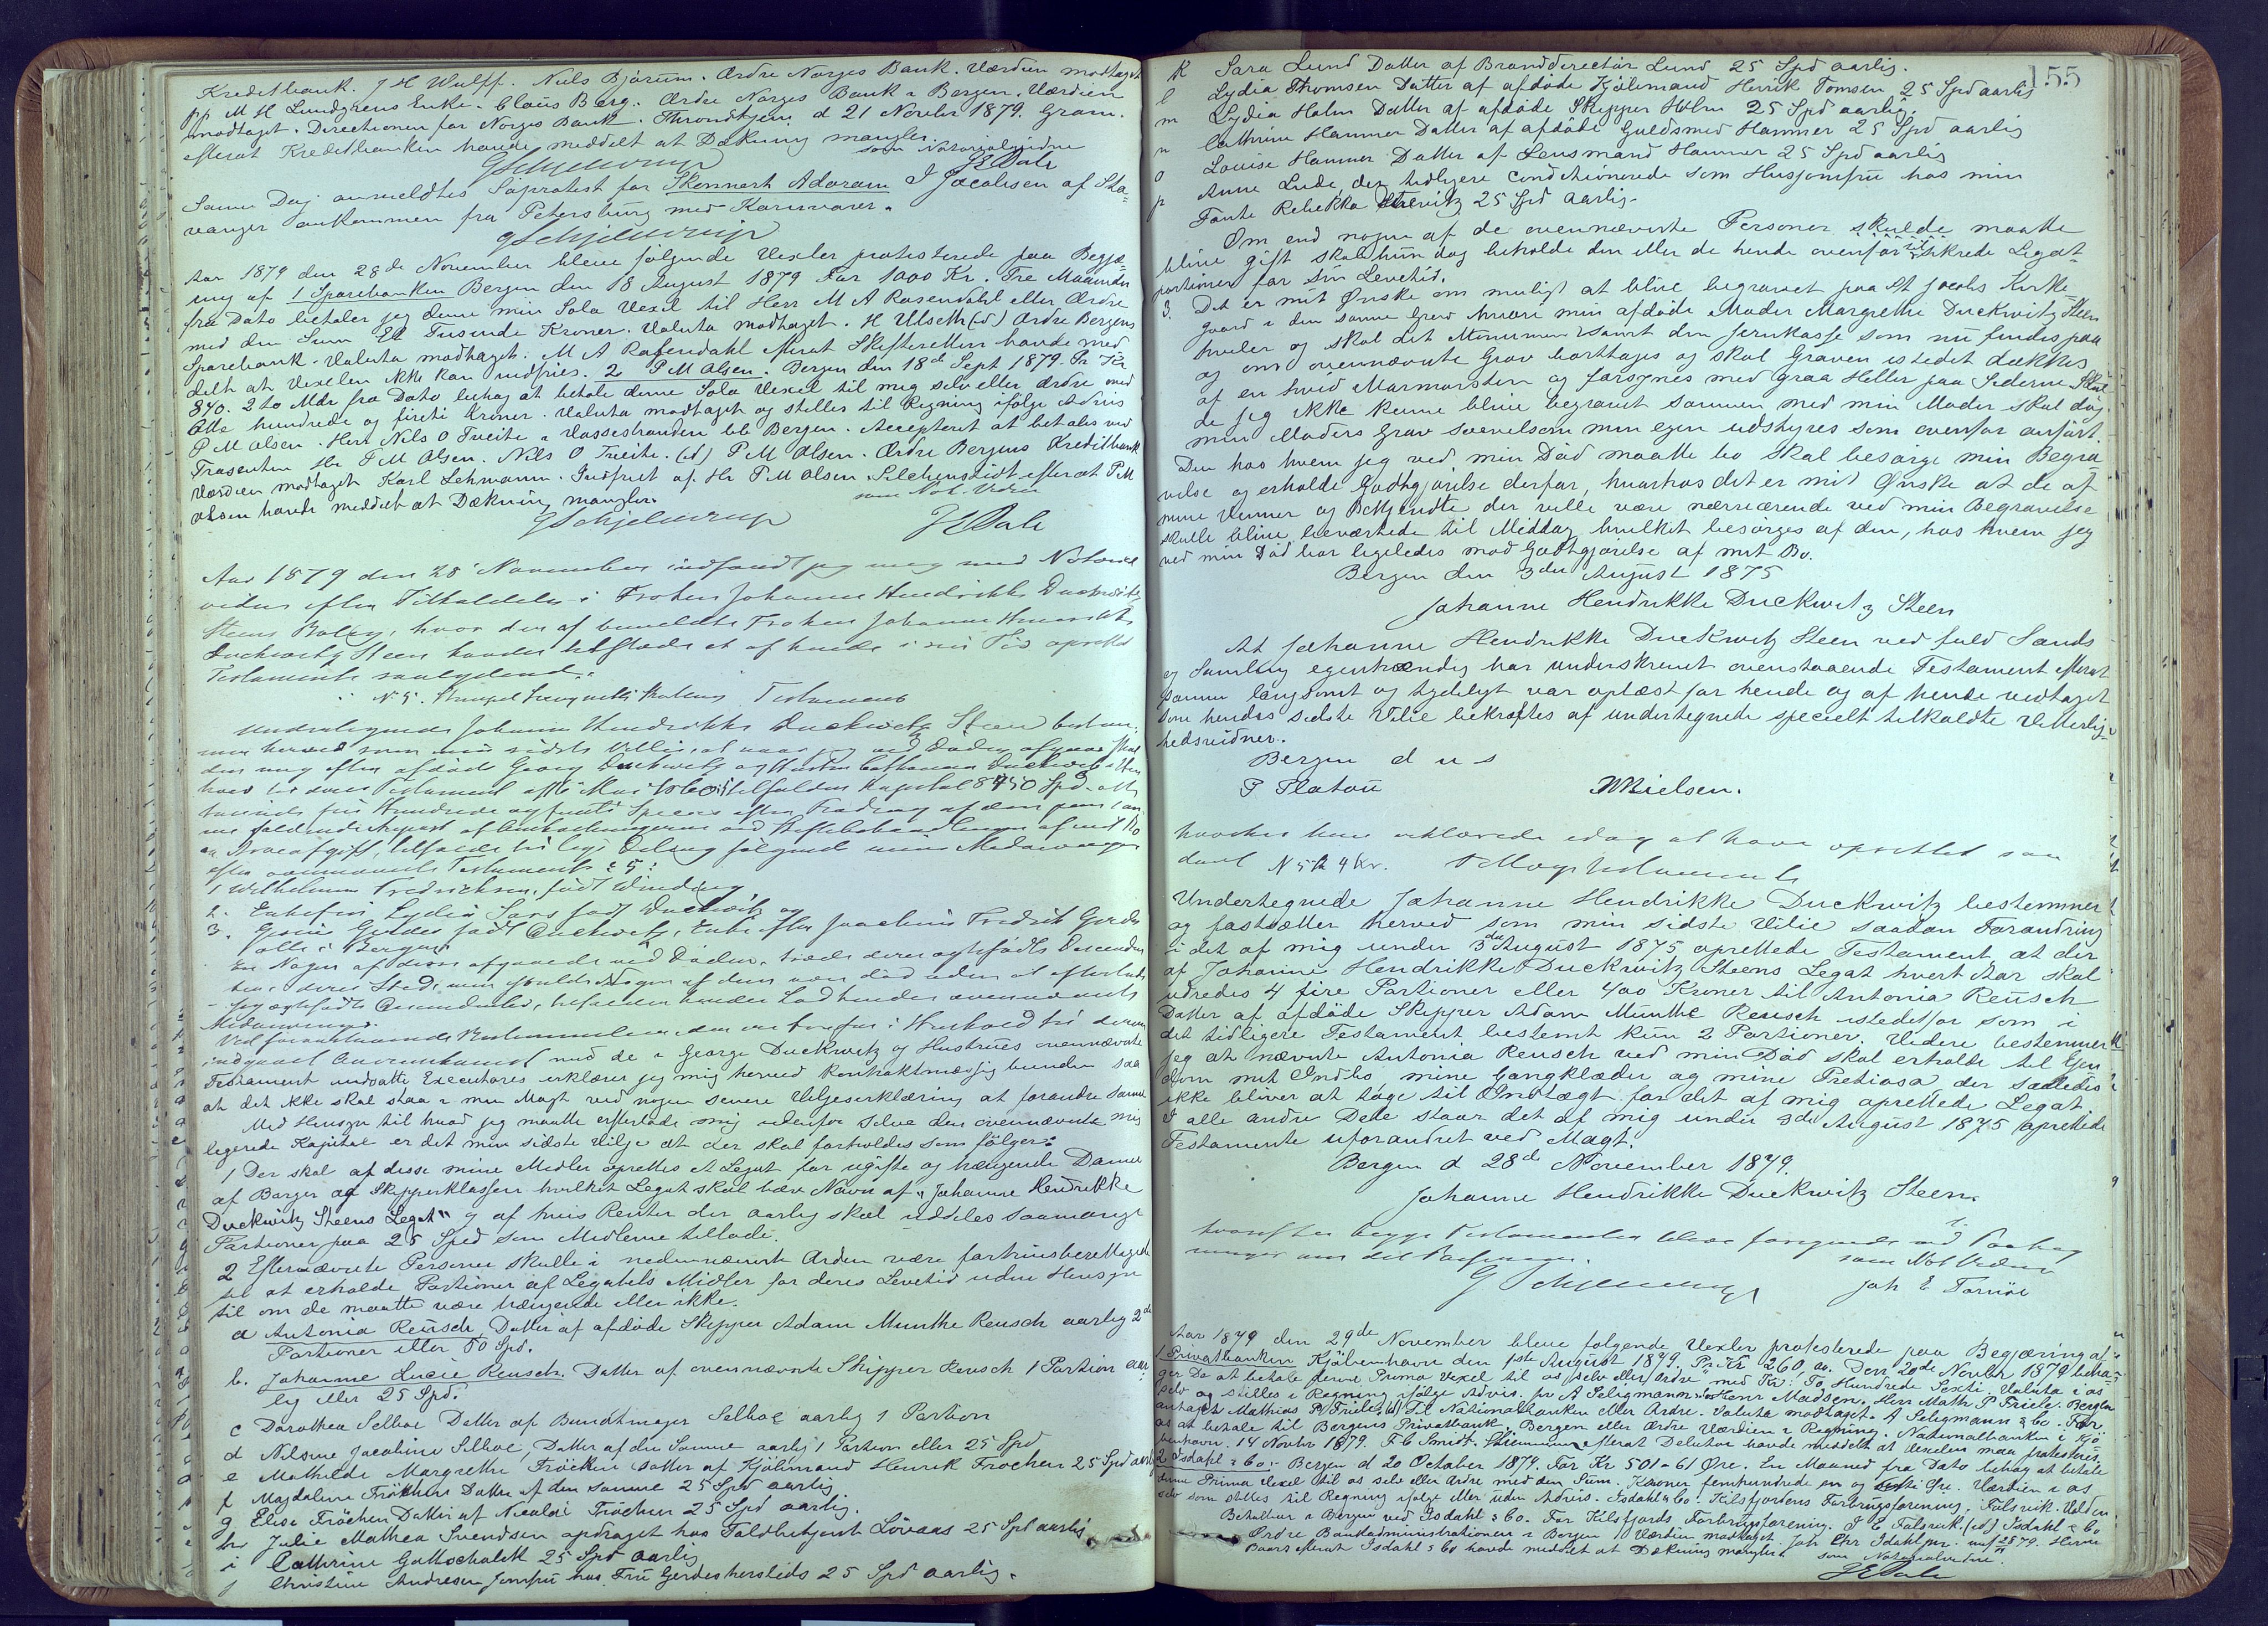 Kreditbank. J H Wulff. Niels Bjørum. Ordre Norges Bank. Værdien modtaget
pp M H Lundgrens Enke. Claus Berg. Ordre Norges Bank i Bergen. Værdien
modtaget. Directionen for Norges Bank. Throndhjem d 21 Novbr 1879. Gram.
efterat Kreditbanken havde meddelt at Dækning mangler.
som Notarialvidne
GSchjelderup JEDale
Samme Dag anmeldtes Søprotest for Skonnert Adoram J Jacobsen af Sta-
vanger ankommen fra Petersburg med Kornvarer.
GSchjelderup
Aar 1879 den 28de November bleve følgende Vexler protesterede paa Begjæ-
ring af 1 Sparebanken Bergen den 18 August 1879 For 1000 Kr. Tre Maaneder
fra Dato betaler jeg denne min Sola Vexel til Herr M A Rosendahl eller Ordre
med den Sum Et Tusinde Kroner. Valuta modtaget. H Ulseth (d) Ordre Bergens
Sparebank. Valuta modtaget. M A Rosendahl efterat Skifteretten havde med
delt at Vexelen ikke kan indfries. 2 P M Olsen. Bergen den 18de Sept 1879. Pr Kr
840. 2 to Mdr fra Dato behag at betale denne Sola Vexel til mig selv eller Ordre med
Otte hundrede og firti Kroner. Valuta modtaget og stilles til Regning ifølge Advis
P M Olsen. Herr Nils O Tveite a Vossestranden bb Bergen. Accepteret at betales ved
Trasenten Hr P M Olsen. Nils O Tveite. (d) P M Olsen. Ordre Bergens Kreditbank
Værdien modtaget Karl Lehmann. Indfriet af Hr P M Olsen efterat P M
Olsen havde meddelt at Dækning mangler.
som Not. Vidne
GSchjelderup JEDale
Aar 1879 den 28 November indfandt jeg mig med Notarial
vidne efter Tilkaldelse i Frøken Johanne Hendrikke Duckwitz
Steens Bolig, hvor der af bemeldte Frøken Johanne Hendrikke
Duckwitz Steen havdes tilstede et af hende i sin Tid oprettet
Testamente saalydende:
N 5. Testament
Undertegnede Johanne Hendrikke Duckwitz Steen bestem-
mer herved som min sidste Villie, at naar jeg ved Døden afgaar skal
den mig efter afdøde Georg Duckwitz og Hustru Cathrine Duckwitz
Testament af Mai tilfaldne Kapital 8450 Spd. otte
tusinde fire Hundrede og femti Species efter Fradrag af
faldende af Omkostningerne ved Skiftebehandlingen af mit Bo
og Arveafgift, tilfalde til lige Deling følgende mine Medarvinger
efter ovennævnte Testament:
1 Wilhelmine Fredriksen, født Winding
2. Enkefru Lydia Sars født Duckwitz og
3. Gerdes født Duckwitz, Enke efter Joachim Fredrik Gerdes
alle i Bergen.
Er Nogen af disse afgaaede ved Døden, træde deres ægtefødte Descenden
ter i deres Sted, men skulde Nogen af dem være død uden at efterlade
sig ægtefødte Descendenter, tilfalder Lod hendes ovennævnte
Medarvinger.
Ved foranstaaende Bestemmelser, der ere trufne i Henhold til derom
indgaaet Overenskomst med de i George Duckwitz og Hustrues ovennævnte
Testament indsatte Executores erklærer jeg mig herved kontraktmæssig bunden saa
at det ikke skal staa i min Magt ved nogen senere Viljeserklæring at forandre samme
Med Hensyn til hvad jeg maatte efterlade mig udenfor selve den ovennævnte mig
legerede Kapital er det min sidste Vilje at der skal forholdes som følger:
1 Der skal af disse mine Midler oprettes et Legat for ugifte og trængende Damer
af Borger og Skipperklassen hvilket Legat skal bære Navn af "Johanne Hendrikke
Duckwitz Steens Legat" og af hvis Renter der aarlig skal uddeles saamange
Portioner paa 25 Sped som Midlerne tillade.
2 Efternævnte Personer skulle i nedennævnte Orden være fortrinsberettigede
til at erholde Portioner af Legatets Midler for deres Levetid uden Hensyn
til om de maatte være trængende eller ikke.
a Antonia Reusch, Datter af afdøde Skipper Adam Munthe Reusch aarlig 2de
Portioner eller 50 Spd.
b. Johanne Lucie Reusch. Datter af ovennævnte Skipper Reusch 1 Portion aar-
lig eller 25 Spd.
c Dorothea Selboe Datter af Bundtmager Selboe aarlig 1 Portion
d Nilsine Jacobine Selboe, Datter af den Samme aarlig 1 Portion eller 25 Spd
e Mathilde Margrethe Frøchen Datter af Kjøbmand Henrik Frøchen 25 Spd aarl
f Magdalene Frøchen Datter af den samme 25 Spd aarlig
g Elise Frøchen Datter af Nicolai Frøchen 25 Spd aarlig.
h Julie Mathea Svendsen opdraget hos Toldbetjent Lövaas 25 Spd aarlig
i Cathrine Gottschalck 25 Spd aarlig
j Christine Andresen Jomfru hos Fru Gerdes hersteds 25 Spd aarlig.
155
k Sara Lund Datter af Branddirectør Lund 25 Spd aarlig.
l Lydia Thomsen Datter af afdøde Kjøbmand Henrik Tomsen 25 Spd aarlig
m Lydia Holm Datter af afdøde Skipper Holm 25 Spd aarlig
n Cathrine Hammer Datter af afdøde Guldsmed Hammer 25 Spd aarlig
o Louise Hammer Datter af Lensmand Hammer 25 Spd aarlig
p Anne Lude, der tidligere conditionerede som Husjomfru hos min
Tante Rebekka 25 Spd aarlig.
Om end nogen af de ovennævnte Personer skulde maatte
blive gift skal hun dog beholde den eller de hende ovenfor tilsikrede Legat-
portioner for sin Levetid.
3. Det er mit Ønske om muligt at blive begravet paa St Jacobs Kirke-
gaard i den samme Grav hvori min afdøde Moder Margrethe Duckwitz Steen
hviler og skal det Monument samt den Jernkasse som nu findes paa
og om ovennævnte Grav borttages og skal Graven istedet dækkes
af en hvid Marmorsten og forsynes med graa Heller paa Siderne. Skul
de jeg ikke kunne blive begravet sammen med min Moder skal dog
min Moders Grav saavelsom min egen udstyres som ovenfor anført.
Den hos hvem jeg ved min Død maatte bo skal besørge min Begra
velse og erholde Godtgjørelse derfor, hvorhos det er mit Ønske at de af
mine Venner og Bekjendte der ville være nærværende ved min Begravelse
skulle blive beværtede til Middag hvilket besørges af den, hos hvem jeg
ved min Død bor ligeledes mod Godtgjørelse af mit Bo.
Bergen den 3die August 1875
Johanne Hendrikke Duckwitz Steen
At Johanne Hendrikke Duckwitz Steen ved fuld Sands
og Samling egenhændig har underskrevet ovenstaaende Testament efterat
samme langsomt og tydeligt var oplæst for hende og af hende vedtaget
som hendes sidste Vilie bekræftes af undertegnede specielt tilkaldte Vitterlig-
hedsvidner.
Bergen d u s
P Platou WNielsen.
hvorhos hun erklærede idag at have oprettet saa
dant N 5 4 Kr. Tillægstestament
Undertegnede Johanne Hendrikke Duckwitz bestemmer
og fastsætter herved som min sidste Vilie saadan Forandring
i det af mig under 3die August 1875 oprettede Testament, at der
af Johanne Hendrikke Duckwitz Steens Legat hvert Aar skal
udredes 4 fire Portioner eller 400 Kroner til Antonia Reusch
Datter af afdöde Skipper Adam Munthe Reusch istedetfor som i
det tidligere Testament bestemt kun 2 Portioner. Videre bestemmer
jeg at nævnte Antonia Reusch ved min Død skal erholde til Eien
dom mit Indbo, mine Gangklæder og mine Pretiosa der saaledes
ikke bliver at tage til Indtægt for det af mig oprettede Legat
I alle andre Dele staar det af mig under 3die August 1875 oprettede
Testamente uforandret ved Magt.
Bergen d 28de November 1879.
Johanne Hendrikke Duckwitz Steen.
hvorefter begge Testamenter bleve forsynede med Paateg
ninger om det Passerede.
som Not Vidne
G Schjelderup Joh E Tornöe
Aar 1879 den 29de November bleve følgende Vexler protesterede paa Begjæring af
1 Privatbanken Kjøbenhavn den 1ste August 1879. Pr Kr 260,00. Den 20de Novbr 1879 beha-
ger De at betale denne Prima Vexel til os selv eller Ordre med Kr: To Hundrede Sexti. Valuta i os
selv og stilles i Regning ifølge Advis. pr A Seligmann & Co Henr Madsen. Herr Math P Friele. Bergen
antaget Mathias P Friele (d) Til Nationalbanken eller Ordre. Valuta modtaget. A Seligmann & Co. For
os at betale til Bergens Privatbank, Bergen eller Ordre Værdien i Regning. Nationalbanken i Kjø-
benhavn. 14 Novbr 1879. F C Smidt. efterat Debitor havde meddelt at Vexelen maa protesteres.
2 Isdahl & Co:- Bergen d 20 October 1879. For Kr 501-61 Øre. En Maaned fra Dato behag at betale
denne Prima Vexel til os selv eller Ordre med den Sum Kroner femhundrede en og Øre. Værdien i os
selv som stilles til Regning ifølge eller uden Advis. Isdahl & Co. Kilsfjordens Forbrugsforening. Folsvik. Volden
Betalbar i Bergen ved Isdahl & Co. For Kilsfjords Forbrugsforening. P E Folsvik. (d) Isdahl & Co
Ordre Bankadministrationen i Bergen Værdien modtaget. Joh Chr Isdahl jnr.
Baars efterat Isdahl & Co havde meddelt at Dækning mangler.
som Notarialvidne.
JEDale